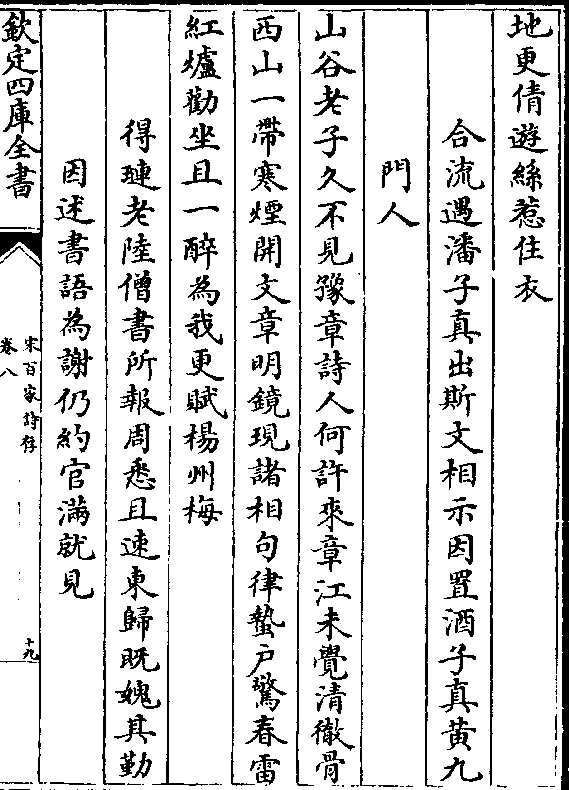 地更倩遊絲惹住衣
合流遇潘子真出斯文相示因置酒子真黄九
門人
山谷老子久不見豫章詩人何許來章江未覺清徹骨
西山一帶寒煙開文章明鏡現諸相句律蟄戸驚春雷
紅爐勸坐且一醉為我更賦楊州梅
得璉老陸僧書所報周悉且速東歸既媿其勤
因述書語為謝仍約官滿就見
欽定四庫全書
宋百家詩存
卷八
十九